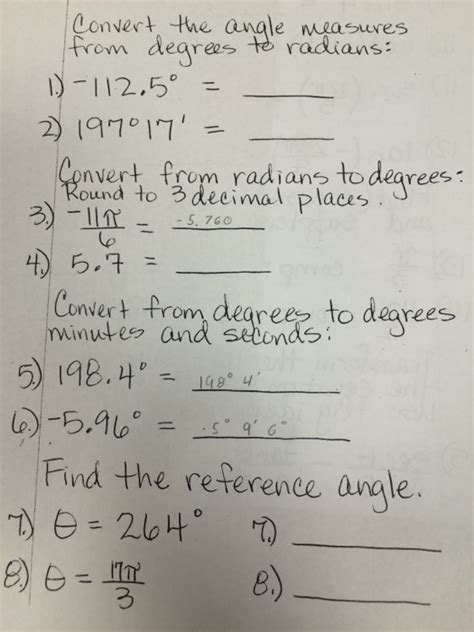 Convert the angle measures
from degrees to radians:
1.) -112.5° = ____
2) 197°17' = ____
Convert from radians to degrees:
Round to 3 decimal places.
3.) -11π/6 = -5.760
4.) 5.7 = ____
Convert from degrees to degrees
minutes and seconds:
5.) 198.4° = 198° 4'
6.) -5.96° = -5° 9' 6"
Find the reference angle.
7.) θ = 264° 7.) ____
8.) θ = 17π/3 8.) ____